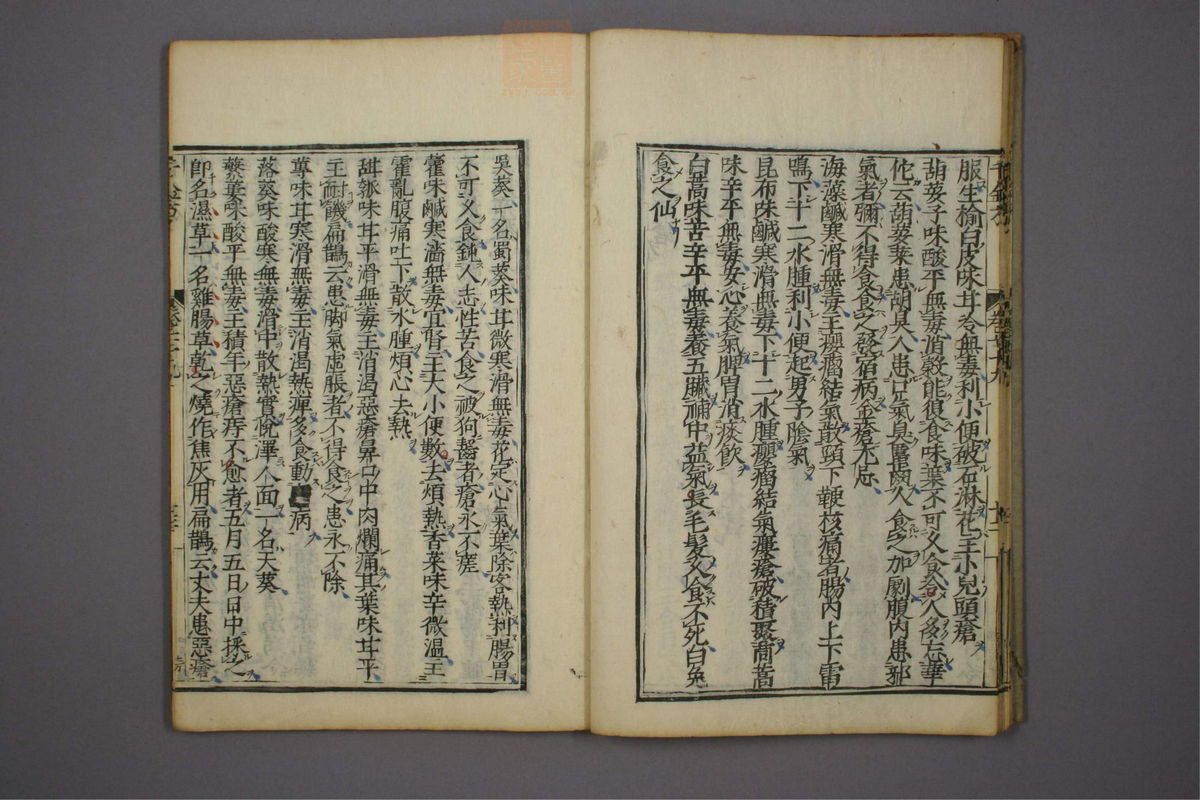 服生榆白皮味甘冷無毒利小便破石淋花主小兒頭瘡
胡荽子味酸平無毒消穀能復食味葉不可久食令人多忘華
佗云胡荽菜患胡臭人患口氣臭䘌齒人食之加劇腹內患邪
氣者彌不得食食之發宿病金瘡尤忌
海藻鹹寒滑無毒主癭瘤結氣散頸下鞕核痛者腸內上下雷
鳴下十二水腫利小便起男子陰氣
昆布味鹹寒滑無毒下十二水腫癭瘤結氣瘻瘡破積聚茼蒿
味辛平無毒安心養氣脾胃消痰飲
白蒿味苦辛平無毒養五臟補中益氣長毛髮久食不死白兔
食之仙
吳葵一名蜀葵味甘微寒滑無毒花定心氣葉除客熱利腸胃
不可久食鈍人志性若食之被狗齧者瘡永不瘥
藿味鹹寒濇無毒宜腎主大小便數去煩熱香菜味辛微溫主
霍亂腹痛吐下散水腫煩心去熱
甜瓠味甘平滑無毒主消渴惡瘡鼻口中肉爛痛其葉味甘平
主耐饑扁鵲云患脚氣虛脹者不得食之患永不除
蓴味甘寒滑無毒主消渴熱痺多食動病
落葵味酸寒無毒滑中散熱實悅澤人面一名天葵
蘩蔞味酸平無毒主積年惡瘡痔不愈者五月五日日中採之
卽名濕草一名雞腸草乾之燒作焦灰用扁鵲云丈夫患惡瘡